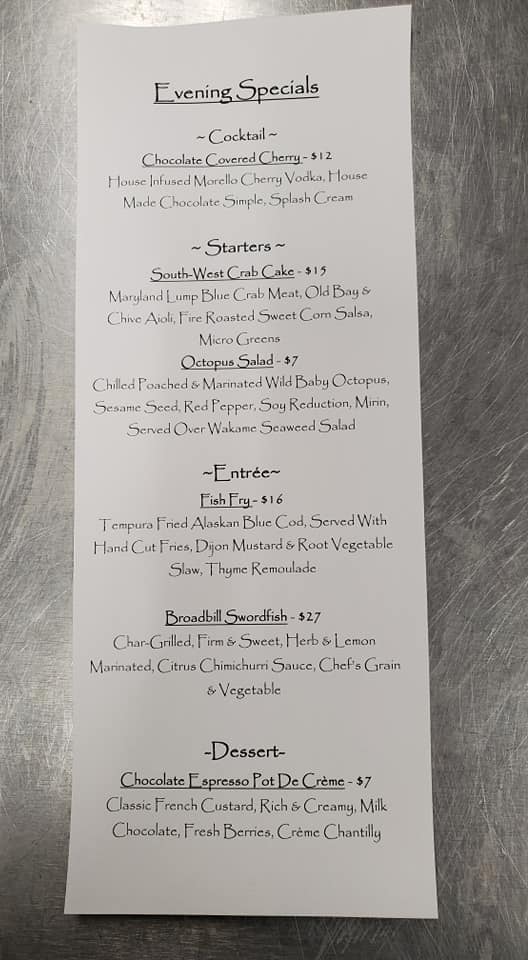 Evening Specials
~ Cocktail ~
Chocolate Covered Cherry - $12
House Infused Morello Cherry Vodka, House
Made Chocolate Simple, Splash Cream
~ Starters ~
South-West Crab Cake - $15
Maryland Lump Blue Crab Meat, Old Bay &
Chive Aioli, Fire Roasted Sweet Corn Salsa,
Micro Greens
Octopus Salad - $7
Chilled Poached & Marinated Wild Baby Octopus,
Sesame Seed, Red Pepper, Soy Reduction, Mirin,
Served Over Wakame Seaweed Salad
~Entrée~
Fish Fry - $16
Tempura Fried Alaskan Blue Cod, Served With
Hand Cut Fries, Dijon Mustard & Root Vegetable
Slaw, Thyme Remoulade
Broadbill Swordfish - $27
Char-Grilled, Firm & Sweet, Herb & Lemon
Marinated, Citrus Chimichurri Sauce, Chef's Grain
& Vegetable
-Dessert-
Chocolate Espresso Pot De Crème - $7
Classic French Custard, Rich & Creamy, Milk
Chocolate, Fresh Berries, Crème Chantilly